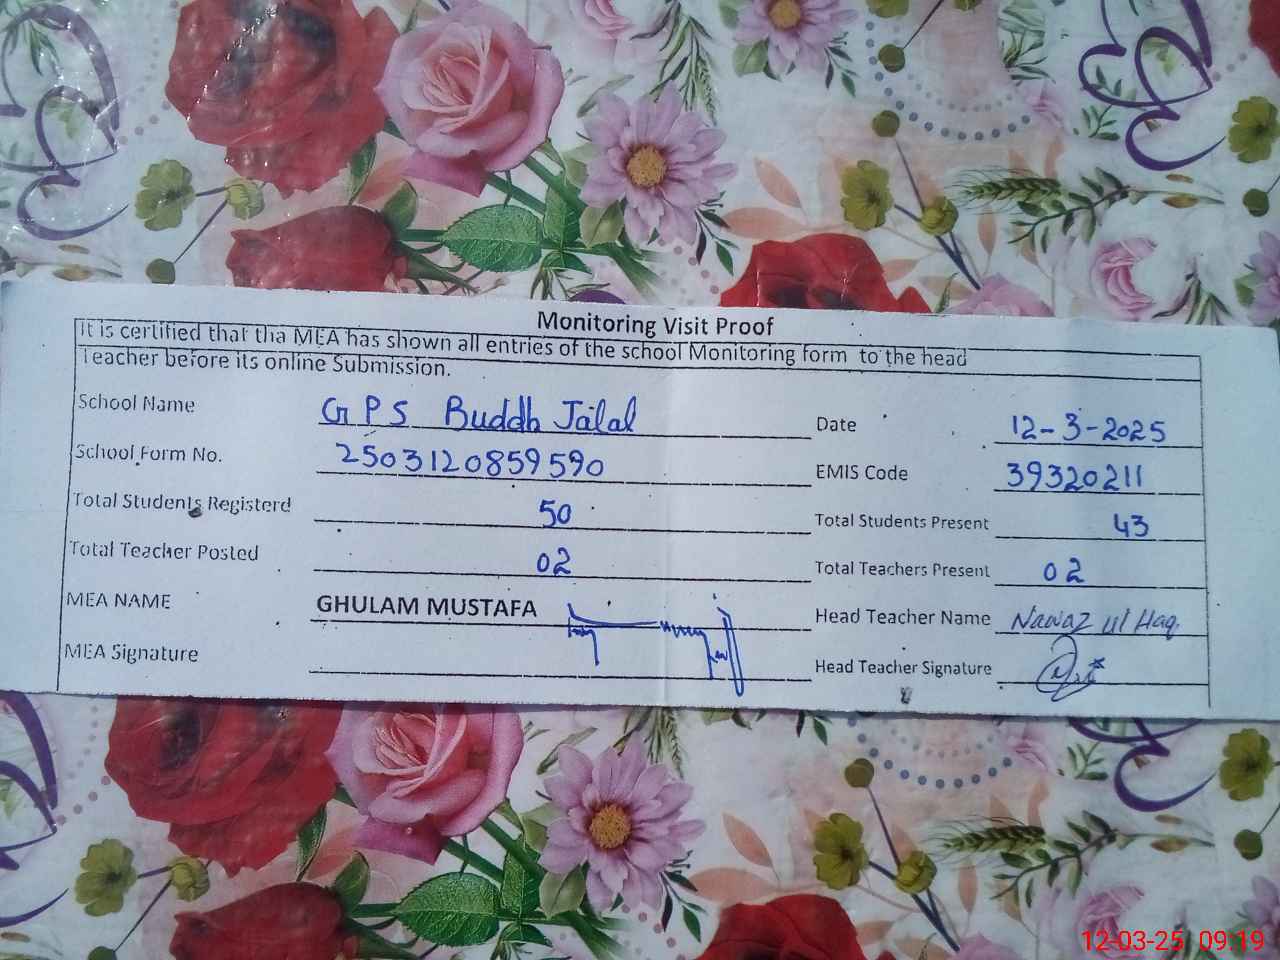 Monitoring Visit Proof
It is certified that tha MEA has shown all entries of the school Monitoring form to the head
Teacher before its online Submission.
School Name GPS Buddh Jalal Date 12-3-2025
School Form No. 2503120859590 EMIS Code 39320211
Total Students Registerd 50 Total Students Present 43
Total Teacher Posted 02 Total Teachers Present 02
MEA NAME GHULAM MUSTAFA Head Teacher Name Nawaz ul Haq.
MEA Signature Head Teacher Signature
12-03-25 09:19